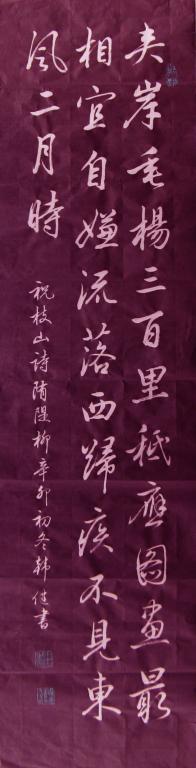 夾岸垂楊三百里秪應圖畫最
相宜自嫌流落西歸疾不見東
風二月時
祝枝山詩隋隄柳辛卯初冬韓書